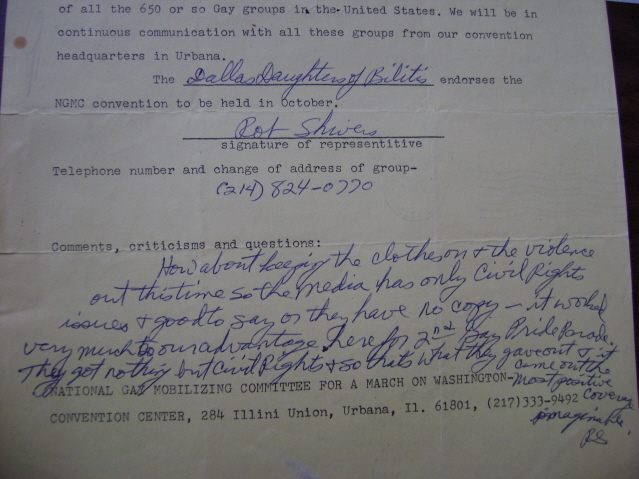 of all the 650 or so Gay groups in the United States. We will be in
continuous communication with all these groups from our convention
headquarters in Urbana.
The Dallas Daughters of Bilitis endorses the
NGMC convention to be held in October.
Rob Shivers
signature of representitive
Telephone number and change of address of group-
(214) 824-0770
Comments, criticisms and questions:
How about keeping the clothes on & the violence
out this time so the media has only Civil Rights
issues & good to say or they have no copy - it worked
very much to our advantage here for 2nd Gay Pride Parade.
They got nothing but Civil Rights & so thats what they gave out & it
came out the
most positive
coverage
imaginable.
RS
NATIONAL GAY MOBILIZING COMMITTEE FOR A MARCH ON WASHINGTON-
CONVENTION CENTER, 284 Illini Union, Urbana, Il. 61801, (217)333-9492